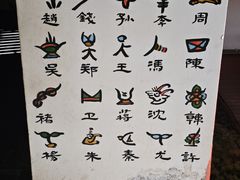 趙 錢 孫 李 周
吴 郑 王 馮 陳
褚 卫 蒋 沈 韓
楊 朱 秦 尤 許